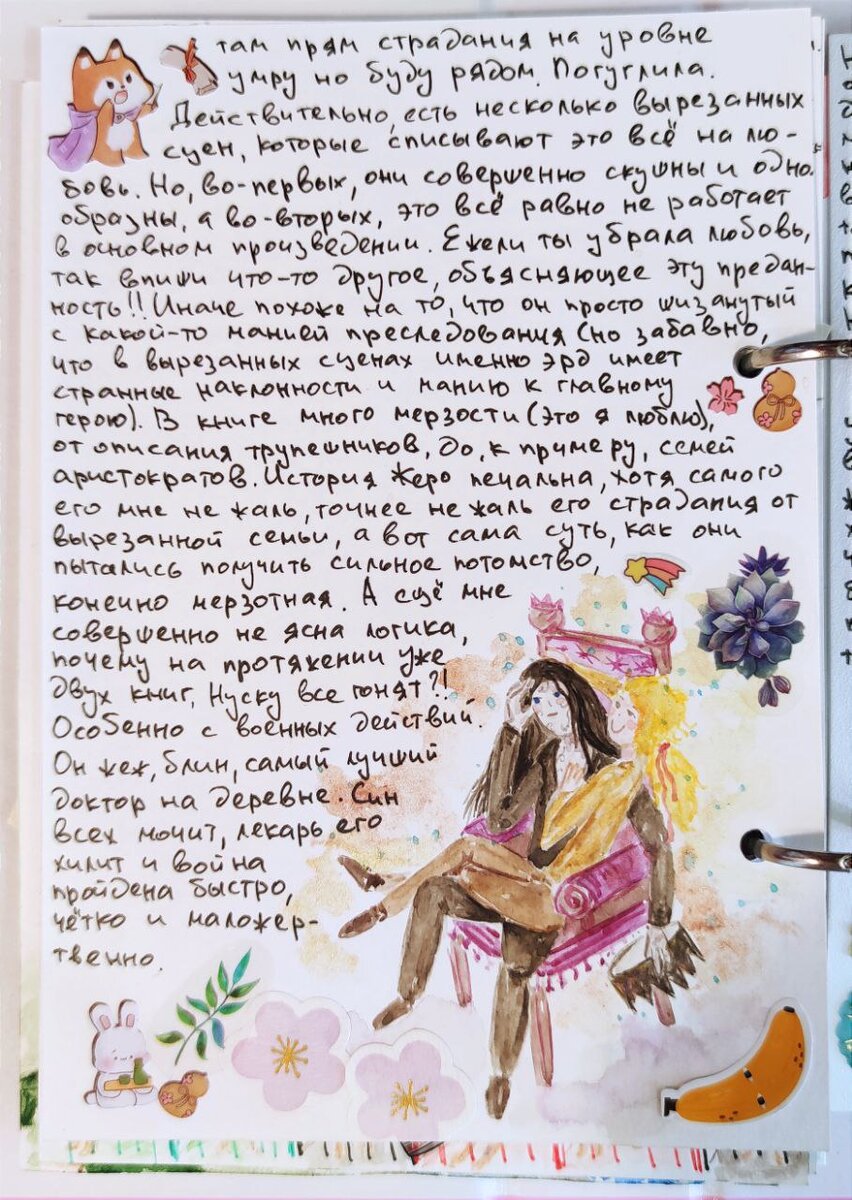 там прям страдания на уровне
умру но буду рядом. Погуглила.
Действительно, есть несколько вырезанных
сцен, которые списывают это всё на лю-
бовь. Но, во-первых, они совершенно скушны и одно.
образны, а во-вторых, это всё равно не работает
в основном произведении. Ежели ты убрала любовь,
так впиши что-то другое, объясняющее эту предан-
ность!! Иначе похоже на то, что он просто шизанутый
с какой-то манией преследования (но забавно,
что в вырезанных сценах именно эрд имеет
странные наклонности и манию к главному
герою). В книге много мерзости (это я люблю),
от описания трупешников, до, к примеру, семей
аристократов. История Жеро печальна, хотя самого
его мне не жаль, точнее не жаль его страдания от
вырезанной семьи, а вот сама суть, как они
пытались получить сильное потомство,
конечно мерзотная. А ещё мне
совершенно не ясна логика,
почему на протяжении уже
двух книг, Нуску все гонят?!
Особенно с военных действий.
Он жеж, блин, самый лучший
доктор на деревне. Син
всех мочит, лекарь его
хилит и война
пройдена быстро,
чётко и маложер-
твенно.